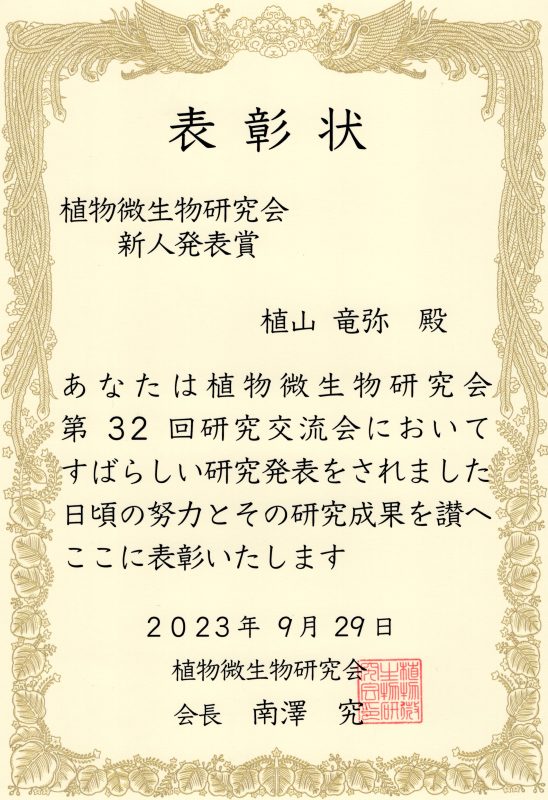 表彰状
植物微生物研究会
新人発表賞
植山 竜弥 殿
あなたは植物微生物研究会
第 32 回研究交流会において
すばらしい研究発表をされました
日頃の努力とその研究成果を讃へ
ここに表彰いたします
2023年 9月 29日
植物微生物研究会
会長 南澤 究
植物微
生物研
究会印